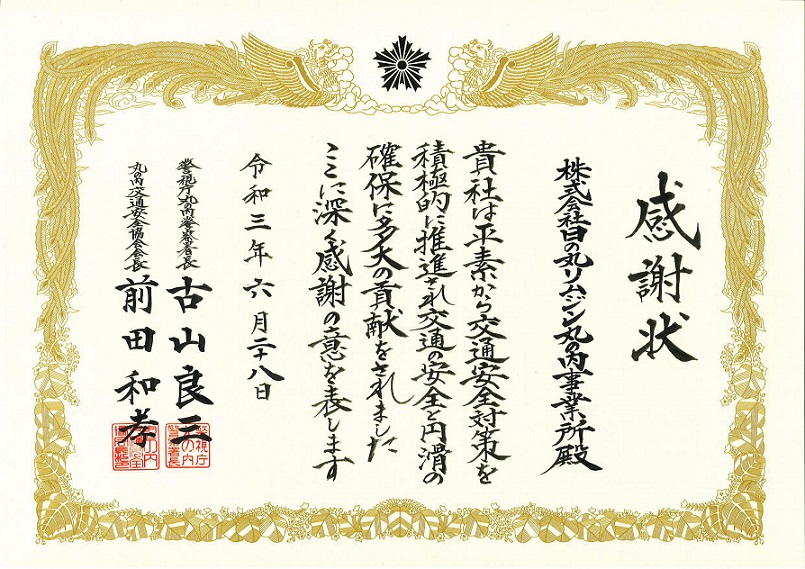 感謝状
株式会社日の丸リムジン丸の内事業所殿
貴社は平素から交通安全対策を
積極的に推進され交通の安全と円滑の
確保に多大の貢献をされました
ここに深く感謝の意を表します
令和三年六月二十八日
警視庁丸の内警察署長 古山良三
丸の内交通安全協会会長 前田和孝
警視庁丸の内警察署長